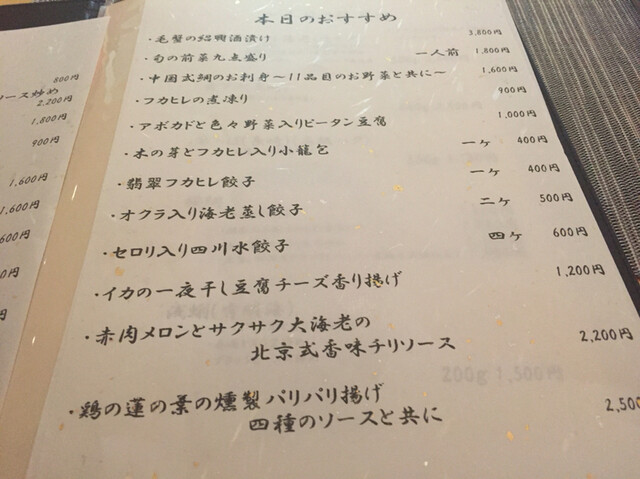 本日のおすすめ
・毛蟹の紹興酒漬け 3,800円
・旬の前菜九点盛り 一人前 1,800円
・中国式鯛のお刺身～11品目のお野菜と共に～ 1,600円
・フカヒレの煮凍り 900円
・アボカドと色々野菜入りピータン豆腐 1,000円
・木の芽とフカヒレ入り小龍包 一ヶ 400円
・翡翠フカヒレ餃子 一ヶ 400円
・オクラ入り海老蒸し餃子 二ヶ 500円
・セロリ入り四川水餃子 四ヶ 600円
・イカの一夜干し豆腐チーズ香り揚げ 1,200円
・赤肉メロンとサクサク大海老の
北京式香味チリソース 2,200円
・鶏の蓮の葉の燻製パリパリ揚げ
四種のソースと共に 2,500
800円
ソース炒め
2,200円
1,800円
900円
1,600円
1,600円
600円
200g 1,500円